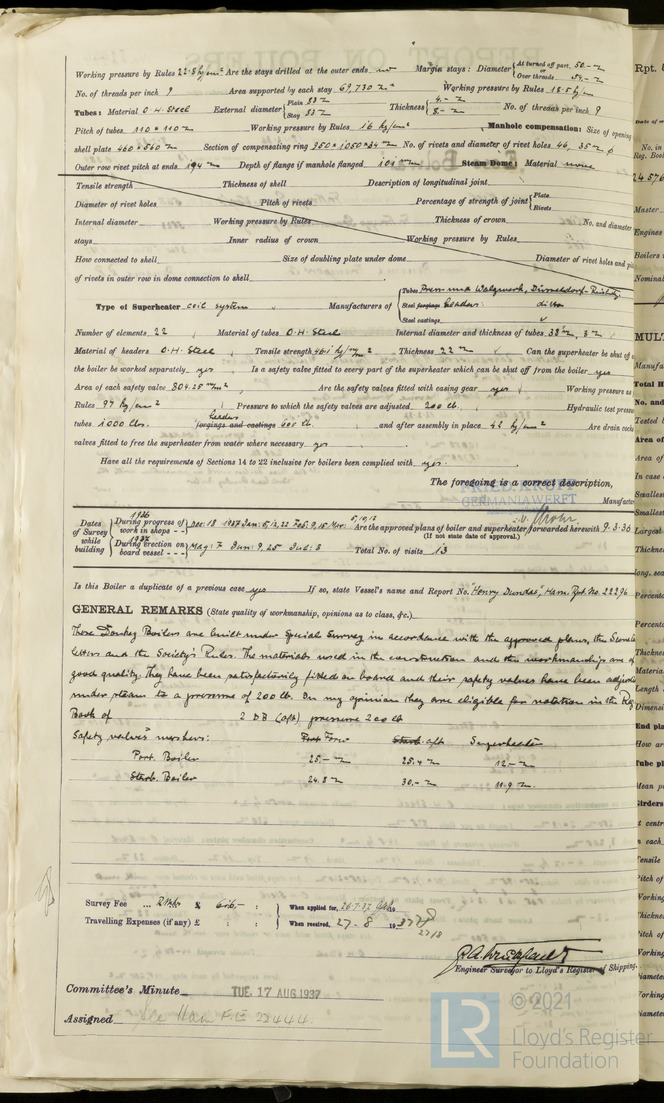 Working pressure by Rules 22.8 kg/cm² Are the stays drilled at the outer ends no Margin stays: Diameter { At turned off part, 50.- m/m Over threads
No. of threads per inch 9 Area supported by each stay 69,730 m/m² Working pressure by Rules 18.5 kg/cm
Tubes: Material O.H. Steel External diameter { Plain 83 m/m Stay 83 m/m Thickness { 4.- m/m 8.- m/m No. of threads per inch 9
Pitch of tubes 110 × 110 m/m Working pressure by Rules 16 kg/cm² Manhole compensation: Size of opening
shell plate 460×560 m/m Section of compensating ring 350×1050×34 m/m No. of rivets and diameter of rivet holes 46, 35 m/m ø
Outer row rivet pitch at ends 194 m/m Depth of flange if manhole flanged 104 m/m Steam Dome: Material none
Tensile strength Thickness of shell Description of longitudinal joint
Diameter of rivet holes Pitch of rivets Percentage of strength of joint { Plate Rivets
Internal diameter Working pressure by Rules Thickness of crown No. and diameter
stays Inner radius of crown Working pressure by Rules
How connected to shell Size of doubling plate under dome Diameter of rivet holes and pi
of rivets in outer row in dome connection to shell
Type of Superheater coil system Manufacturers of { Tubes Press und Walzwerk, Düsseldorf-Reisholz Steel forgings headers: ditto Steel castings
Number of elements 22 Material of tubes O.H. Steel Internal diameter and thickness of tubes 38 m/m, 3 m/m
Material of headers O.H. Steel Tensile strength Thickness 22 m/m Can the superheater be shut o
the boiler be worked separately yes Is a safety valve fitted to every part of the superheater which can be shut off from the boiler yes
Area of each safety valve 804.25 m/m² Are the safety valves fitted with easing gear yes Working pressure as
Rules 97 kg/cm² Pressure to which the safety valves are adjusted 200 lb. Hydraulic test pressu
tubes 1000 lbs. forgings and castings headers 600 lb. and after assembly in place 42 kg/cm² Are drain cocks
valves fitted to free the superheater from water where necessary yes
Have all the requirements of Sections 14 to 22 inclusive for boilers been complied with yes
The foregoing is a correct description,
FRIED. KRUPP
GERMANIAWERFT
Manufactu
Dates of Survey while building { During progress of work in shops - - 1936 Dec: 18 1937 Jan: 5, 13, 22 Feb: 9, 15 Mar: 5, 10, 12 Are the approved plans of boiler and superheater forwarded herewith 9.3.36
(If not state date of approval.)
During erection on board vessel - - - 1937 May: 7 Jun: 9, 25 Jul: 8 Total No. of visits 13
Is this Boiler a duplicate of a previous case yes If so, state Vessel's name and Report No. "Henry Dundas," Ham. Rpt. No. 22296
GENERAL REMARKS (State quality of workmanship, opinions as to class, &c.)
These Donkey Boilers are built under Special Survey in accordance with the approved plans, the
letters and the Society's Rules. The materials used in the construction and the workmanship are of
good quality. They have been satisfactorily fitted on board and their safety valves have been adjusted
under steam to a pressure of 200 lb. In my opinion they are eligible for notation in the Reg.
Book of 2 DB (aft) pressure 200 lb
Safety valves' washers: Port Fore Starb. aft Superheater
Port. Boiler 25.- m/m 25.4 m/m 12.- m/m
Starb. Boiler 24.8 m/m 30.- m/m 11.9 m/m
Survey Fee ... £ 6:6:- : When applied for, 26.7.37 19
Travelling Expenses (if any) £ : : When received, 27.8 1937
27/8
Engineer Surveyor to Lloyd's Register of Shipping.
Committee's Minute TUE. 17 AUG 1937
Assigned See Ham F.E. 22444.
LR
© 2021
Lloyd's Register
Foundation
Rpt.